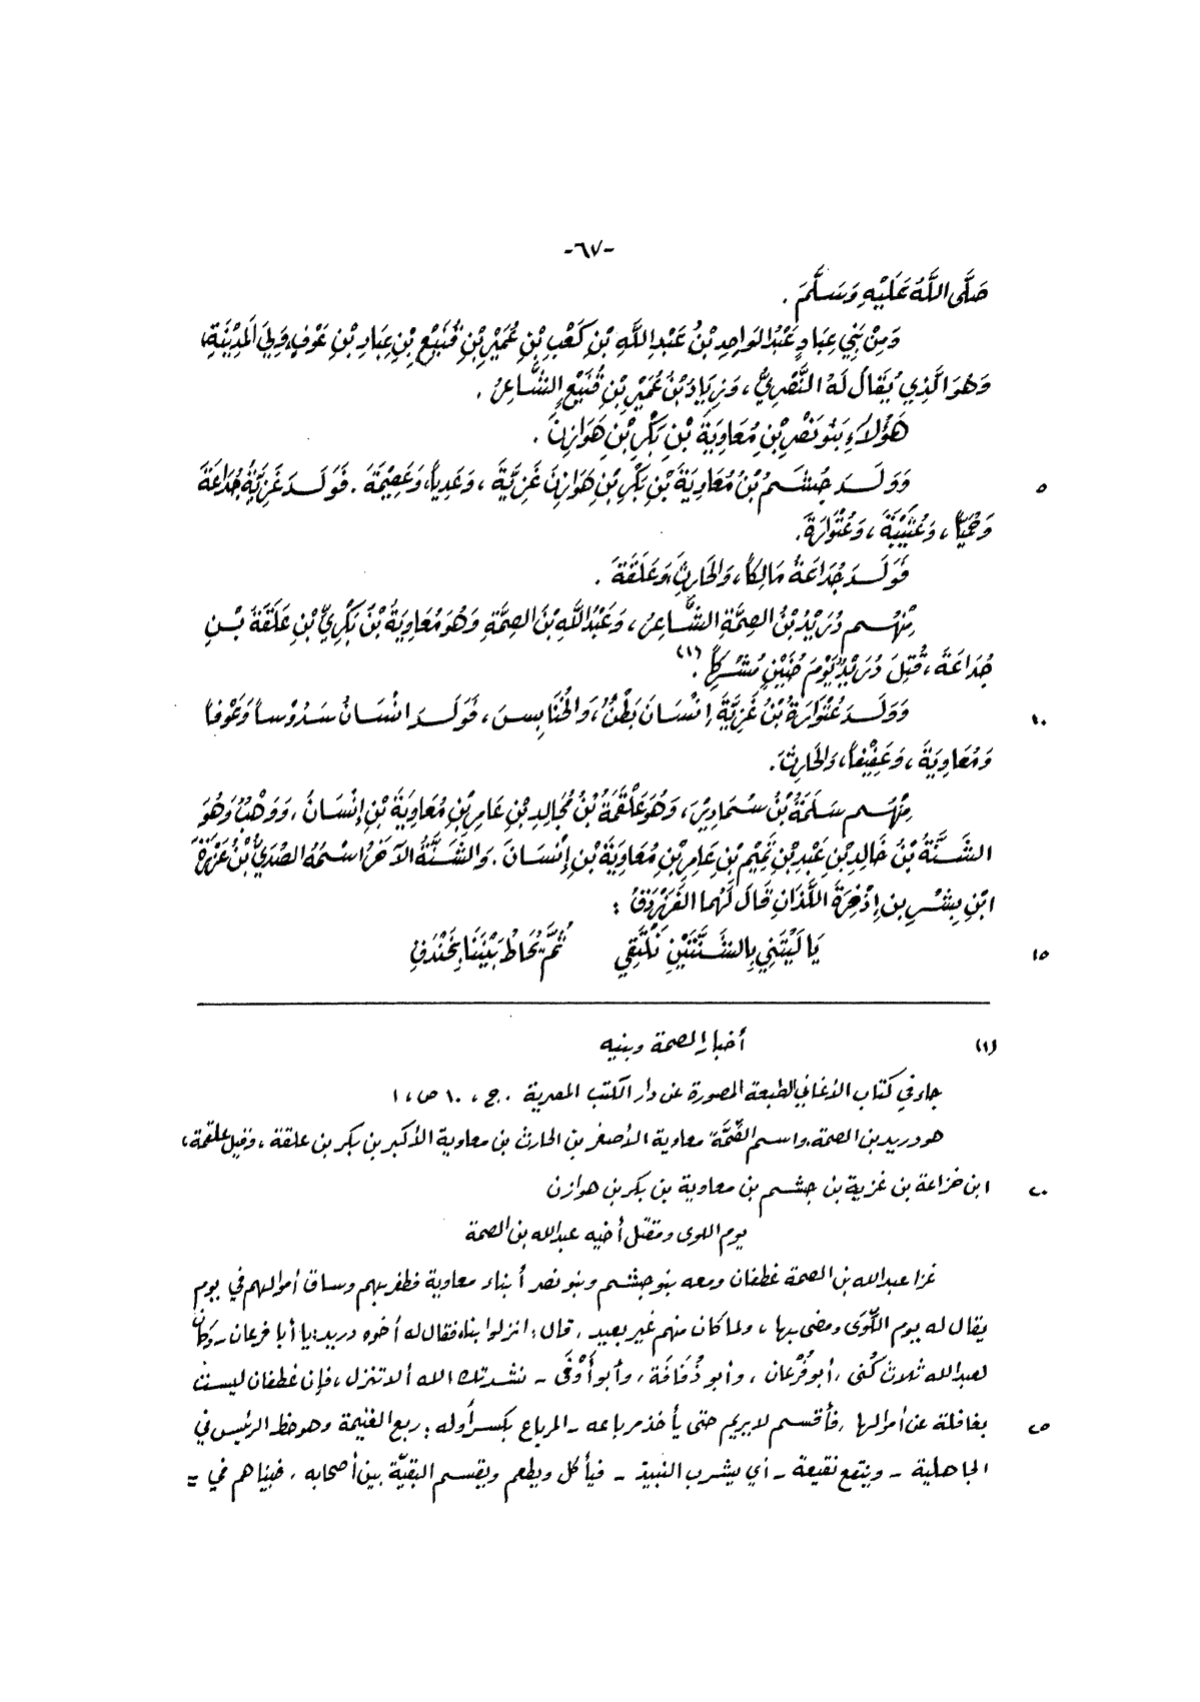 -٦٧-
صَلَّى اللَّهُ عَلَيْهِ وَسَلَّمَ .
وَمِنْ بَنِي عِبَادٍ عَبْدُ الوَاحِدِ بْنُ عَبْدِ اللَّهِ بْنِ كَعْبِ بْنِ عُمَيْرِ بْنِ قُنَيْعِ بْنِ عِبَادِ بْنِ عَوْفٍ، وَلِيَ المَدِيْنَةِ،
وَهُوَ الَّذِي يُقَالُ لَهُ النَّصْرِيُّ ، وَزِيَادُ بْنُ عُمَيْرِ بْنِ قُنَيْعٍ الشَّاعِرُ .
هَؤُلاَءِ بَنُو نَصْرِ بْنِ مُعَاوِيَةَ بْنِ بَكْرِ بْنِ هَوَازِنَ .
٥ وَوَلَدَ جُشَمُ بْنُ مُعَاوِيَةَ بْنِ بَكْرِ بْنِ هَوَازِنَ غَزِيَّةَ ، وَعَدِياً، وَعَصِيْمَةَ . فَوَلَدَ غَزِيَّةُ جُدَاعَةَ
وَحُمَيّاً ، وَعُتَيْبَةَ ، وَعُتْوَارَةَ.
فَوَلَدَ جُدَاعَةُ مَالِكاً، وَالحَارِثَ، وَعَلَقَةَ .
مِنْهُم دُرَيْدُ بْنُ الصِّمَّةِ الشَّاعِرُ ، وَعَبْدُ اللَّهِ بْنُ الصِّمَّةِ وَهُوَ مُعَاوِيَةُ بْنُ بَكْرِيِّ بْنِ عَلَقَةَ بْنِ
جُدَاعَةَ ، قُتِلَ دُرَيْدٌ يَوْمَ حُنَيْنٍ مُشْرِكاً .(١)
١٠ وَوَلَدَ عُتْوَارَةُ بْنُ غَزِيَّةَ إنْسَانَ بَطْنٌ، وَالخُنَابِسَ ، فَوَلَدَ انْسَانُ سَدُوْساً وَعَوْفاً
وَمُعَاوِيَةَ ، وَعَفِيْفاً، وَالحَارِثَ.
مِنْهُم سَلَمَةُ بْنُ سَمَادِيْرَ، وَهُوَ عَلْقَمَةُ بْنُ مُجَالِدِ بْنِ عَامِرِ بْنِ مُعَاوِيَةَ بْنِ إنْسَانُ ، وَوَهْبٌ وَهُوَ
الشَّنَّةُ بْنُ خَالِدِ بْنِ عَبْدِ بْنِ تَمِيْمِ بْنِ عَامِرِ بْنِ مُعَاوِيَةَ بْنِ إنْسَانَ . وَالشَّنَّةُ الآخَرُ اسْمُهُ الصُّدَيُّ بْنُ عَزْرَةَ
ابْنِ بِشْرِ بن إذْخِرَةَ اللَّذَانِ قَالَ لَهُما الفَرَزْدَقُ :
١٥ يَا لَيْتَنِي بِالشَّنَّتَيْنِ نَلْتَقِي ثُمَّ يُحَاطُ بَيْنَنَا بِخَنْدَقِ
(١) أخبار الصمة وبنيه
جاء في كتاب الأغاني الطبعة المصورة عن دار الكتب المصرية . ج ، ١٠ ص ، ١
هو دريد بن الصمة، واسم الصِّمَّة معاوية الأصغر بن الحارث بن معاوية الأكبر بن بكر بن علقة ، وقيل علقمة،
٢٠ ابن خزاعة بن غزية بن جشم بن معاوية بن بكر بن هوازن
يوم اللوى ومقتل أخيه عبد الله بن الصمة
غزا عبد الله بن الصمة غطفان ومعه بنو جشم وبنو نصر أبناء معاوية فظفر بهم وساق أموالهم في يوم
يقال له يوم اللِّوَى ومضى بها ، ولما كان منهم غير بعيد , قال : انزلوا بنا، فقال له أخوه دريد: يا أبا فرعان - وكان
لعبد الله ثلاث كُنى , أبو فُرْعان ، وأبو ذُفَافَة ، وأبو أَوْفَى - نشدتك الله ألا تنزل ، فإن غطفان ليست
٢٥ بغافلة عن أموالها , فأقسم لا يريم حتى يأخذ مرباعه - المرباع بكسر أوله : ربع الغنيمة وهو حظ الرئيس في
الجاهلية - وينقع نقيعة - أي يشرب النبيذ - فيأكل ويطعم ويقسم البقيّة بين أصحابه ، فبينا هم في =